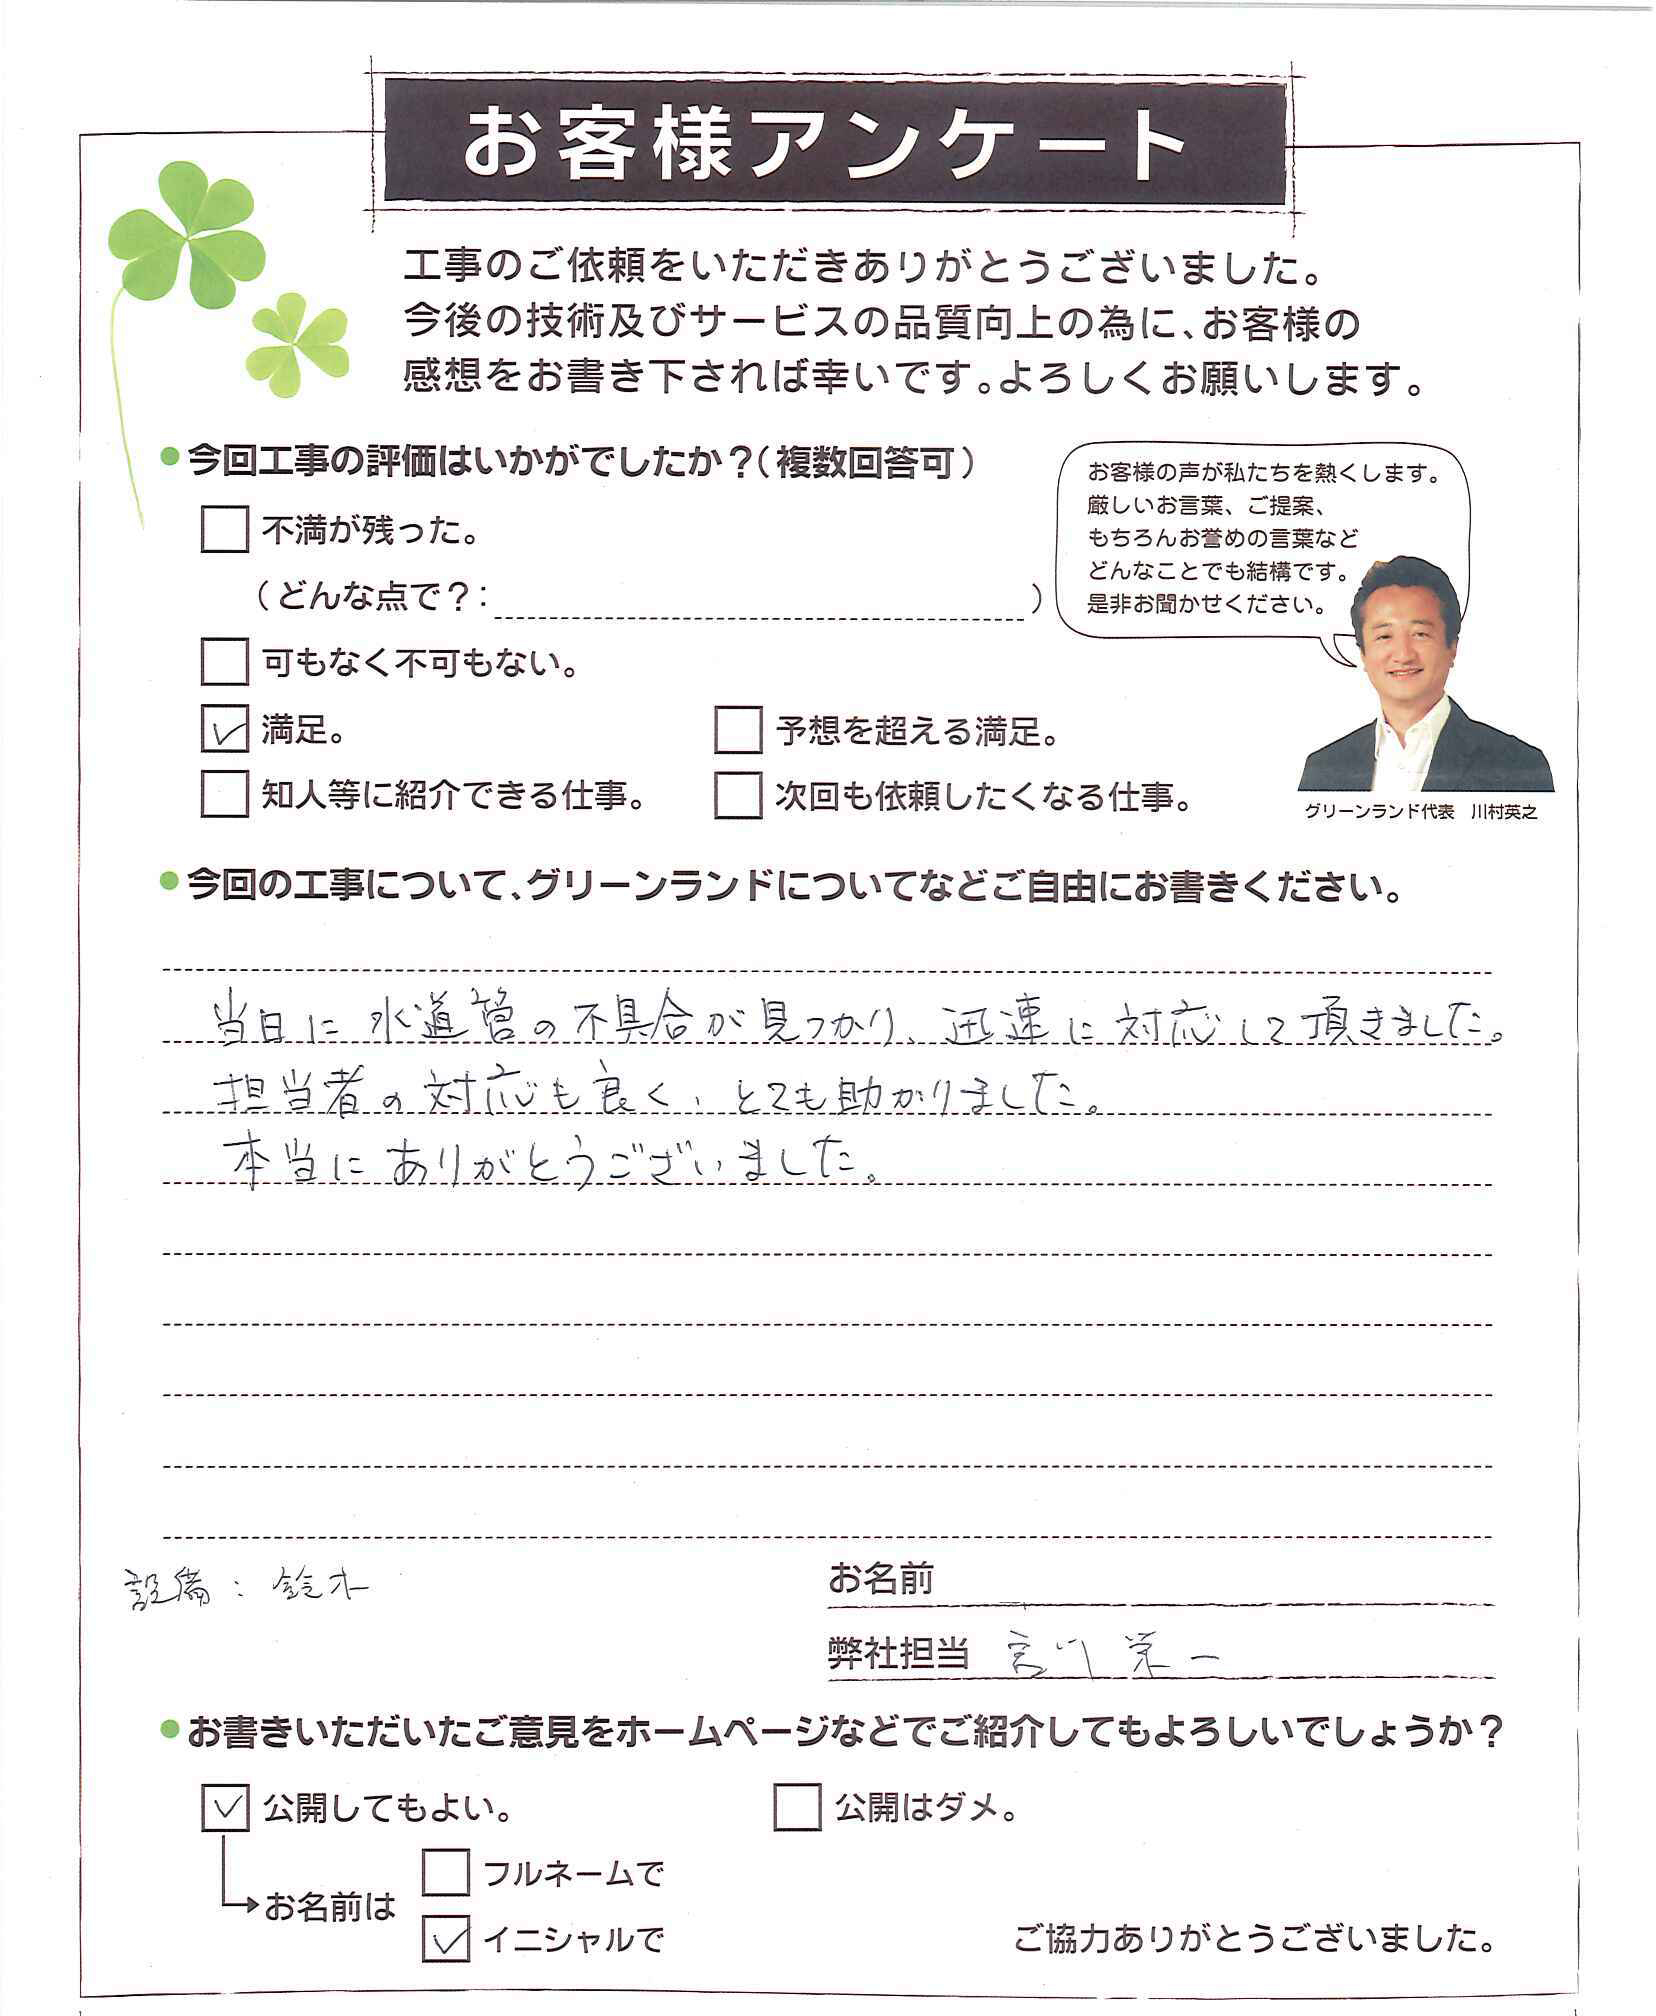 お客様アンケート
工事のご依頼をいただきありがとうございました。
今後の技術及びサービスの品質向上の為に、お客様の
感想をお書き下されば幸いです。よろしくお願いします。
今回工事の評価はいかがでしたか？（複数回答可）
不満が残った。
（どんな点で？：　）
可もなく不可もない。
満足。
予想を超える満足。
知人等に紹介できる仕事。
次回も依頼したくなる仕事。
お客様の声が私たちを熱くします。
厳しいお言葉、ご提案、
もちろんお誉めの言葉など
どんなことでも結構です。
是非お聞かせください。
グリーンランド代表　川村英之
今回の工事について、グリーンランドについてなどご自由にお書きください。
当日に水道管の不具合が見つかり、迅速に対応して頂きました。
担当者の対応も良く、とても助かりました。
本当にありがとうございました。
設備：鈴木
お名前
弊社担当 宮川栄一
お書きいただいたご意見をホームページなどでご紹介してもよろしいでしょうか？
公開してもよい。
公開はダメ。
お名前は
フルネームで
イニシャルで
ご協力ありがとうございました。